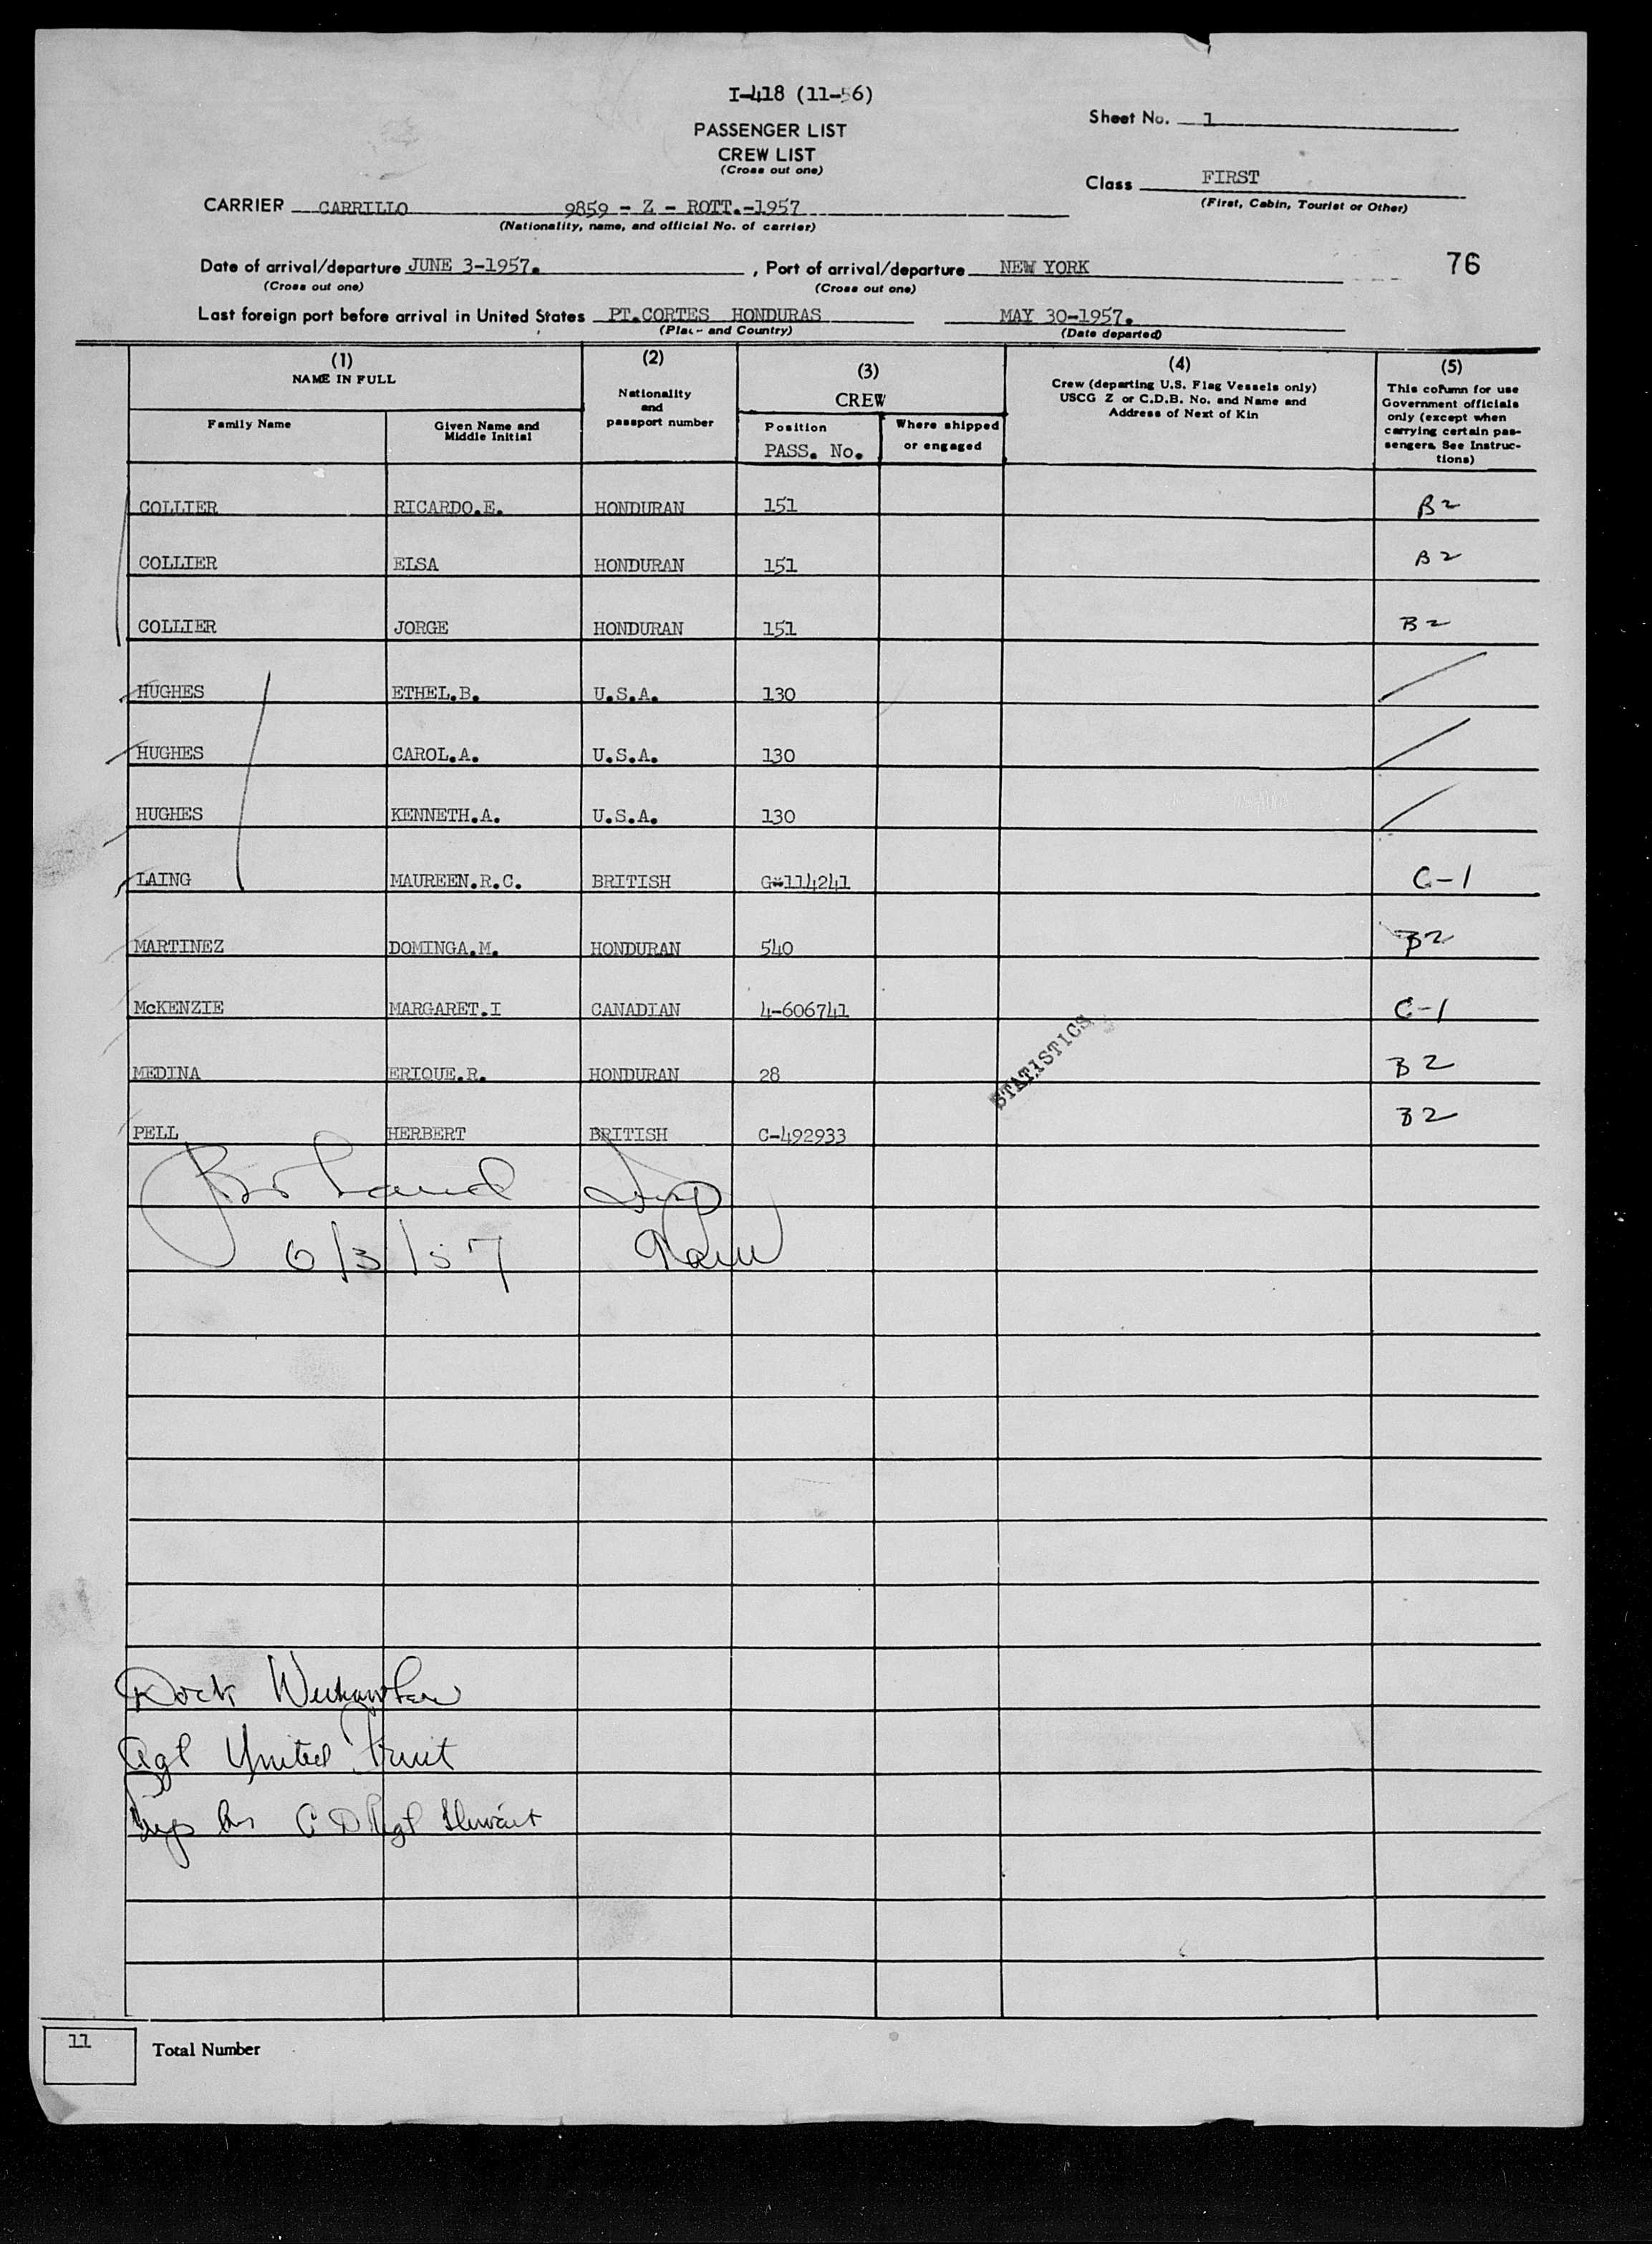 I-418 (11-56)
PASSENGER LIST
CREW LIST
(Cross out one)
Sheet No. 1
Class FIRST
(First, Cabin, Tourist or Other)
CARRIER CARRILLO 9859 - Z - ROTT.-1957
(Nationality, name, and official No. of carrier)
Date of arrival/departure JUNE 3-1957. , Port of arrival/departure NEW YORK 76
(Cross out one) (Cross out one)
Last foreign port before arrival in United States PT.CORTES HONDURAS MAY 30-1957.
(Place and Country) (Date departed)
(1) NAME IN FULL
Family Name
Given Name and Middle Initial
(2) Nationality and passport number
(3) CREW
Position
PASS. No.
Where shipped or engaged
(4)
Crew (departing U.S. Flag Vessels only)
USCG Z or C.D.B. No. and Name and
Address of Next of Kin
(5)
This column for use
Government officials
only (except when
carrying certain pas-
sengers. See Instruc-
tions)
COLLIER RICARDO.E. HONDURAN 151 B2
COLLIER ELSA HONDURAN 151 B2
COLLIER JORGE HONDURAN 151 B2
HUGHES ETHEL.B. U.S.A. 130
HUGHES CAROL.A. U.S.A. 130
HUGHES KENNETH.A. U.S.A. 130
LAING MAUREEN.R.C. BRITISH G-114241 C-1
MARTINEZ DOMINGA.M. HONDURAN 540 B2
McKENZIE MARGARET.I CANADIAN 4-606741 C-1
MEDINA ERIQUE.R. HONDURAN 28 B2
STATISTICS
PELL HERBERT BRITISH C-492933 B2
6/3/57
Dock Weehawken
Agt United Fruit
11 Total Number